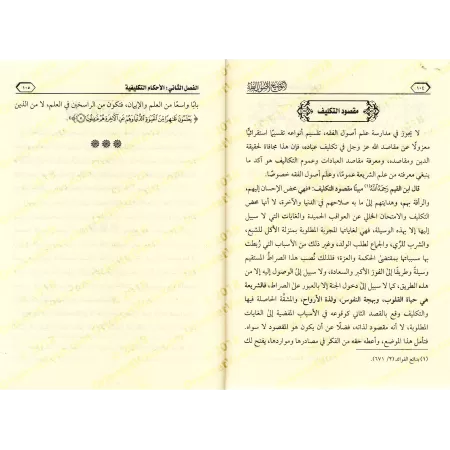 ١٠٤
التوضيح لأصول الفقه
مقصود التكليف
لا يجوز في مدارسة علم أصول الفقه، تقسيم أنواعه تقسيمًا استقرائيًّا
معزولًا عن مقاصد الله عز وجل في تكليف عباده، فإن هذا مجافاة لحقيقة
الدين ومقاصده، ومعرفة مقاصد العبادات وعموم التكاليف هو آكد ما
ينبغي معرفته من علم الشريعة عمومًا، وعلم أصول الفقه خصوصًا.
قال ابن القيم رَحِمَهُ اللَّهُ(١) مبينًا مقصود التكليف: «فهي محض الإحسان إليهم،
والرأفة بهم، وهدايتهم إلى ما به صلاحهم في الدنيا والآخرة، لا أنها محض
التكليف والامتحان الخالي عن العواقب الحميدة والغايات التي لا سبيل
إليها إلا بهذه الوسيلة، فهي لغاياتها المجربة المطلوبة بمنزلة الأكل للشبع،
والشرب للري، والجماع لطلب الولد، وغير ذلك من الأسباب التي ربطت
بها مسبباتها بمقتضى الحكمة والعزة؛ فلذلك نُصب هذا الصراط المستقيم
وسيلةً وطريقًا إلى الفوز الأكبر والسعادة، ولا سبيل إلى الوصول إليه إلا من
هذه الطريق، كما لا سبيل إلى دخول الجنة إلا بالعبور على الصراط، فالشريعة
هي حياة القلوب، وبهجة النفوس، ولذة الأرواح، والمشقة الحاصلة فيها
والتكليف وقع بالقصد الثاني كوقوعه في الأسباب المفضية إلى الغايات
المطلوبة، لا أنه مقصود لذاته، فضلًا عن أن يكون هو المقصود لا سواه.
فتأمل هذا الموضع، وأعطه حقه من الفكر في مصادرها ومواردها، يفتح لك
(١) بدائع الفوائد (٢/ ٦٧١).
الفصل الثاني: الأحكام التكليفية
١٠٥
بابًا واسعًا من العلم والإيمان، فتكون من الراسخين في العلم، لا من الذين
﴿يَعْلَمُونَ ظَاهِرًا مِّنَ الْحَيَاةِ الدُّنْيَا وَهُمْ عَنِ الْآخِرَةِ هُمْ غَافِلُونَ﴾